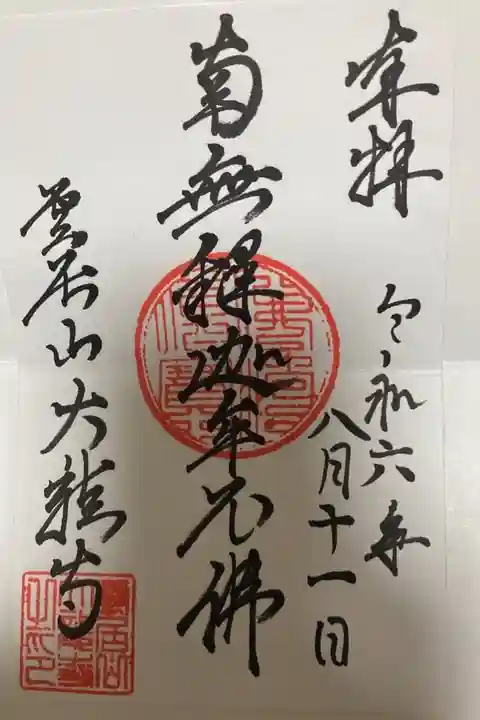 奉拝
令和六年
八月十一日
南無釋迦牟尼佛
山大龍寺